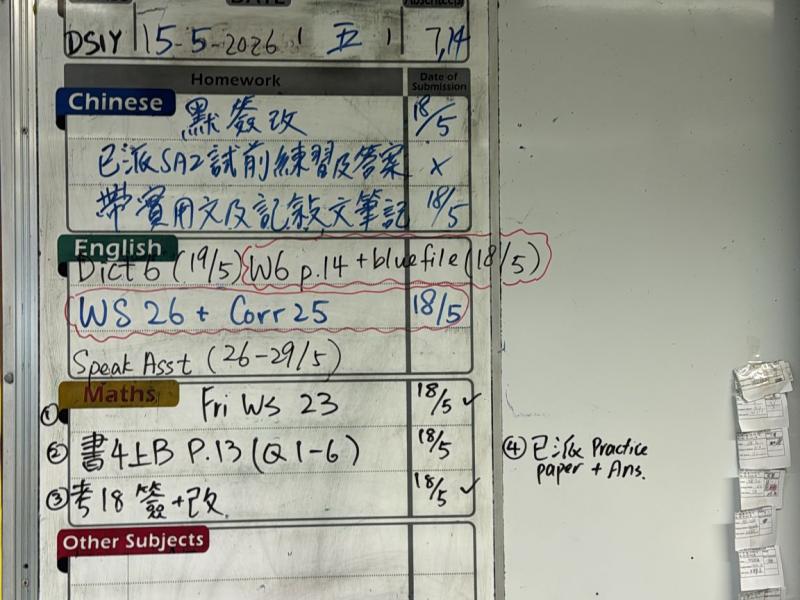 DATE
DSIY 15-5-2026 ( 五 ) 7,14
Homework Date of Submission
Chinese
默簽改 18/5
已派SA2試前練習及答案 x
帶實用文及記敍文筆記 18/5
English
Dict 6 (19/5) W6 p.14 + blue file (18/5)
WS 26 + Corr 25 18/5
Speak Asst (26-29/5)
Maths
① Fri WS 23 18/5 ✓
② 書4上B P.13 (Q1-6) 18/5
③ 考18 簽+改 18/5 ✓
④ 已派 Practice
paper + Ans.
Other Subjects